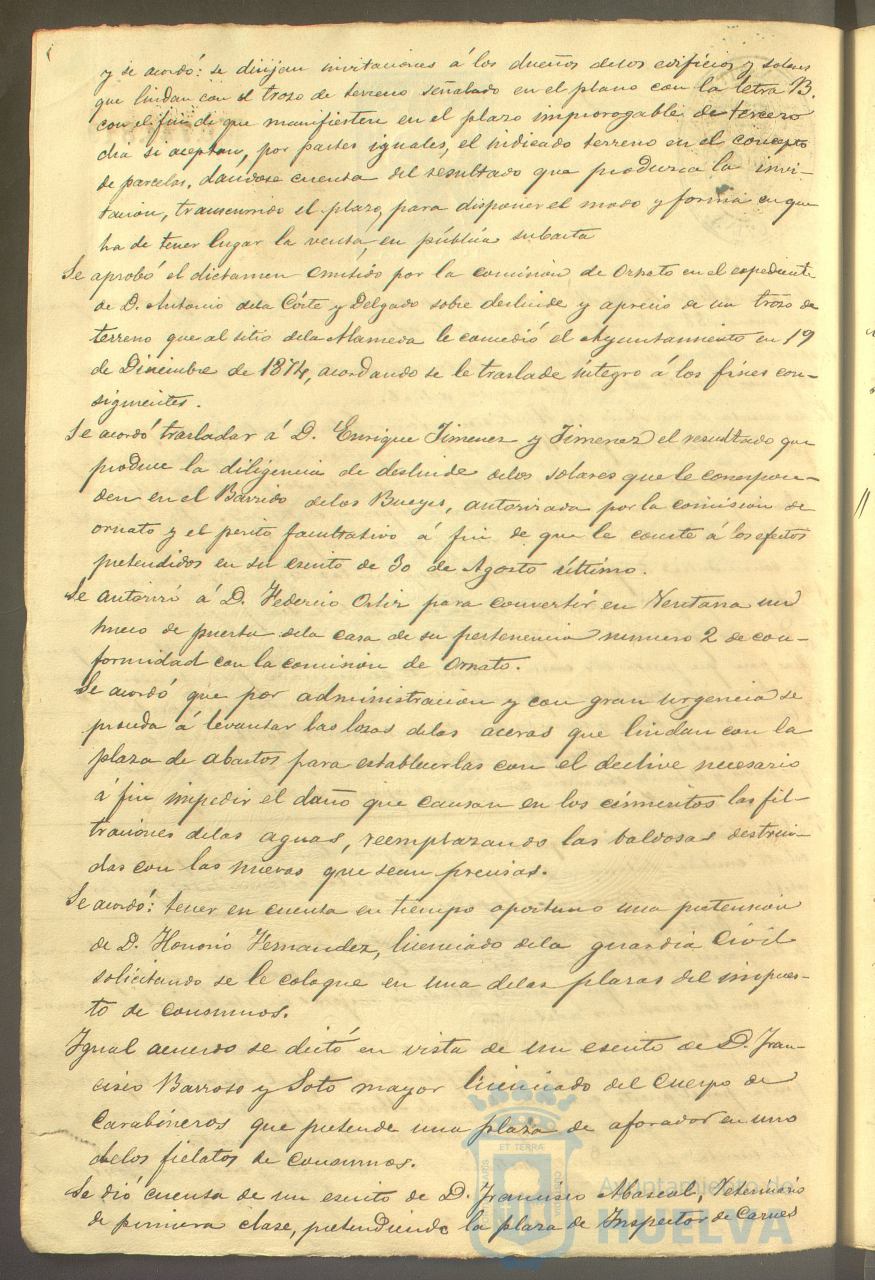 y se acordó: se dirijan invitaciones á los dueños delos edificios y solares
que lindan con el trozo de terreno señalado en el plano con la letra B.
con el fin de que manifiesten en el plazo improrogable de tercero
dia si aceptan, por partes iguales, el indicado terreno en el concepto
de parcelas, dandose cuenta del resultado que produzca la invi-
tacion, transcurrido el plazo, para disponer el modo y forma en que
ha de tener lugar la venta, en pública subasta
Se aprobó el dictamen emitido por la comision de Ornato en el expediente
de D. Antonio dela Córte y Delgado sobre deslinde y aprecio de un trozo de
terreno que al sitio dela Alameda le concedió el Ayuntamiento en 19
de Diciembre de 1874, acordando se le traslade integro á los fines con-
siguientes.
Se acordó trasladar á D. Enrique Jimenez y Jimenez el resultado que
produce la diligencia de deslinde delos solares que le correspon-
den en el Barrido delos Bueyes, autorizada por la comision de
ornato y el perito facultativo á fin de que le conste á los efectos
pretendidos en su escrito de 30 de Agosto último.
Se autorizó á D. Federico Ortiz para convertir en Ventana un
hueco de puerta dela casa de su pertenencia numero 2 de con-
formidad con la comision de Ornato.
Se acordó que por administracion y con gran urgencia se
proceda á levantar las losas delas aceras que lindan con la
plaza de abastos para establecerlas con el declive necesario
á fin impedir el daño que causan en los cimientos las fil-
traciones delas aguas, reemplazando las baldosas destrui-
das con las nuevas que sean precisas.
Se acordó: tener en cuenta en tiempo oportuno una pretension
de D. Honorio Hernandez, licenciado dela guardia Civil
solicitando se le coloque en una delas plazas del impues-
to de consumos.
Ygual acuerdo se dictó en vista de un escrito de D. Fran-
cisco Barroso y Soto mayor licenciado del Cuerpo de
Carabineros que pretende una plaza de aforador en uno
delos fielatos de consumos.
Se dió cuenta de un escrito de D. Francisco Mascal, Veterinario
de primera clase, pretendiendo la plaza de Inspector de Carnes
ET TERRA
Ayuntamiento de
HUELVA